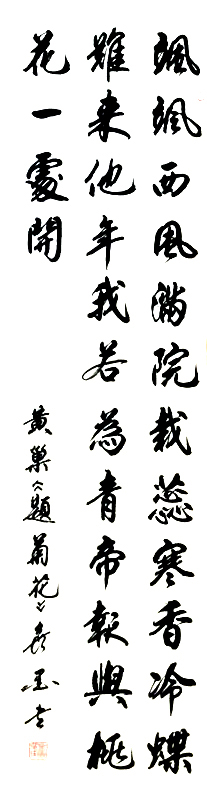 颯颯西風滿院栽蕊寒香冷蝶
難来他年我若為青帝報與桃
花一處開
黄巢《題菊花》